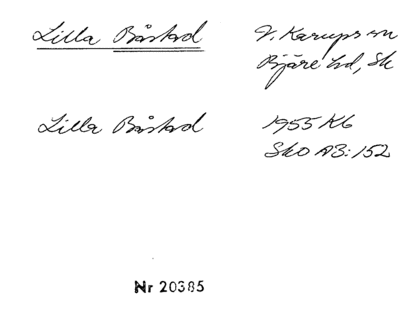 Lilla Båstad
V. Karups sn
Bjäre hd, Sk
Lilla Båstad
1955 Kb
Sko AB:152
Nr 20385